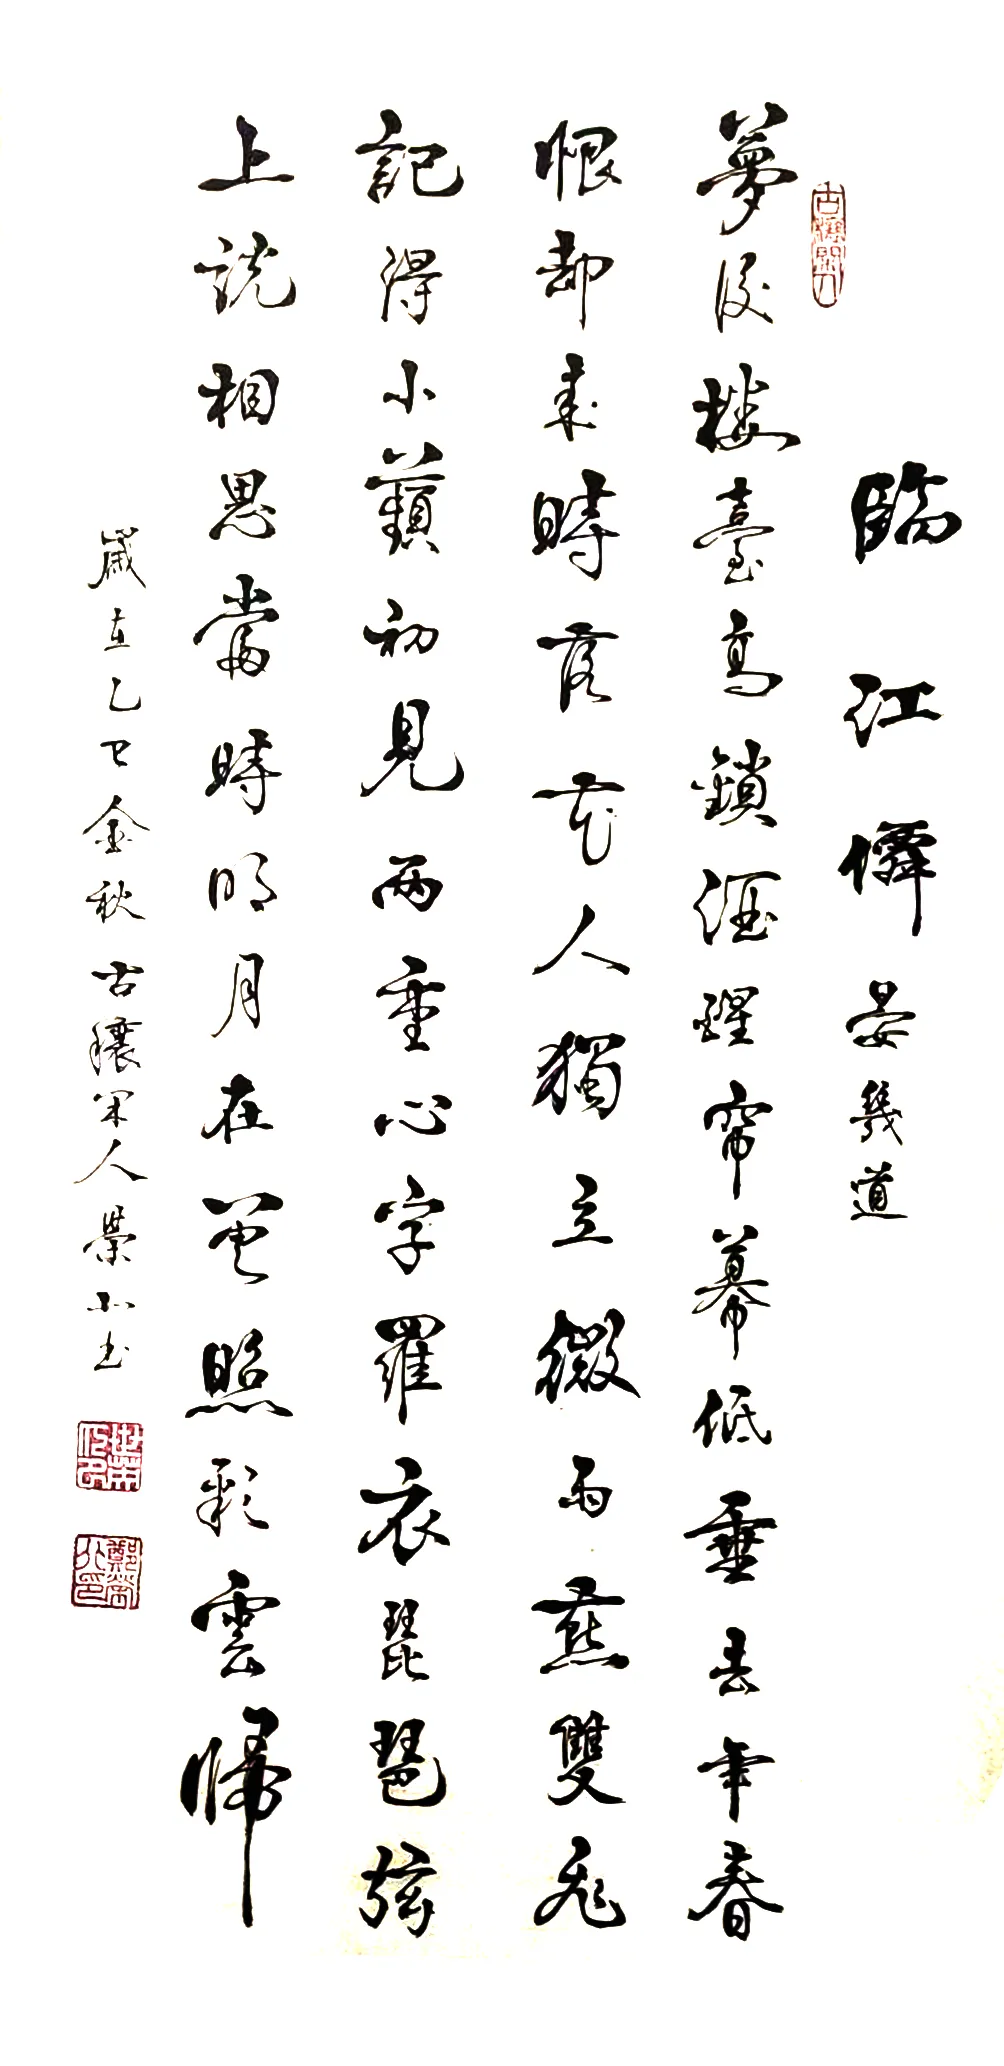 臨江僊 晏幾道
夢後楼臺高鎖酒醒帘幕低垂去年春
恨却来時落花人獨立微雨燕雙飛
記得小蘋初見兩重心字羅衣琵琶弦
上説相思當時明月在曾照彩雲歸
歲在乙巳金秋古穰宋人榮小书